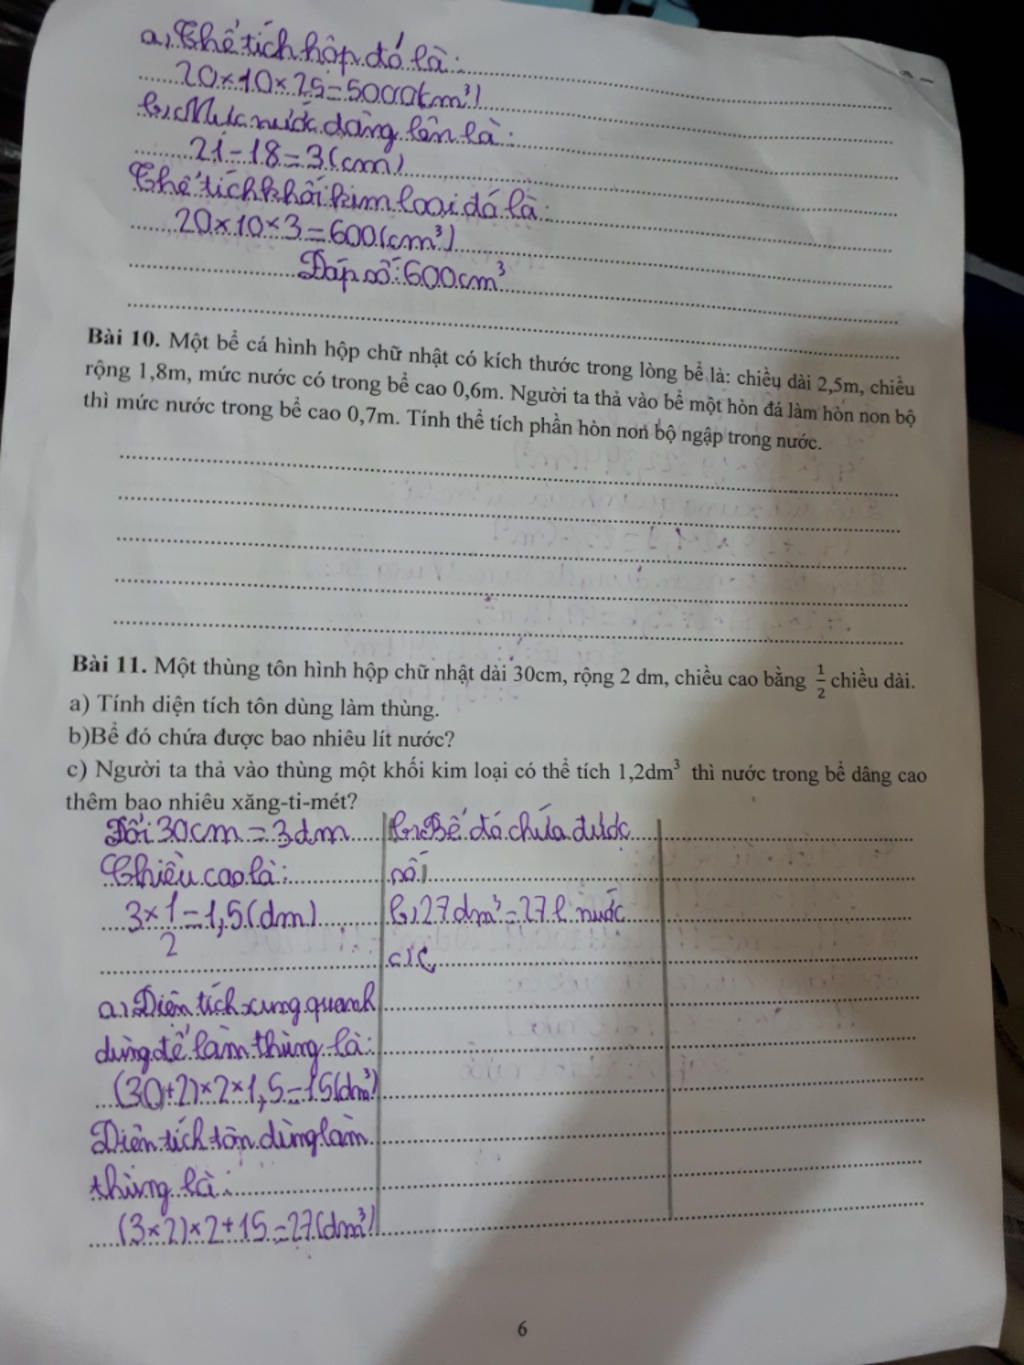 a, Thể tích hộp đó là:
20×10×25=5000(cm³)
b, Mực nước dâng lên là:
21-18=3(cm)
Thể tích khối kim loại đó là:
20×10×3=600(cm³)
Đáp số: 600cm³
Bài 10. Một bể cá hình hộp chữ nhật có kích thước trong lòng bể là: chiều dài 2,5m, chiều
rộng 1,8m, mức nước có trong bể cao 0,6m. Người ta thả vào bể một hòn đá làm hòn non bộ
thì mức nước trong bể cao 0,7m. Tính thể tích phần hòn non bộ ngập trong nước.
Bài 11. Một thùng tôn hình hộp chữ nhật dài 30cm, rộng 2 dm, chiều cao bằng 1/2 chiều dài.
a) Tính diện tích tôn dùng làm thùng.
b)Bể đó chứa được bao nhiêu lít nước?
c) Người ta thả vào thùng một khối kim loại có thể tích 1,2dm³ thì nước trong bể dâng cao
thêm bao nhiêu xăng-ti-mét?
Đổi 30cm=3dm
Chiều cao là:
3×1/2=1,5(dm)
a, Diện tích xung quanh
dùng để làm thùng là:
(30+2)×2×1,5=15(dm³)
Diện tích tôn dùng làm
thùng là:
(3×2)×2+15=27(dm³)
b, Bể đó chứa được
số
b, 27dm³=27l nước
c, C
6